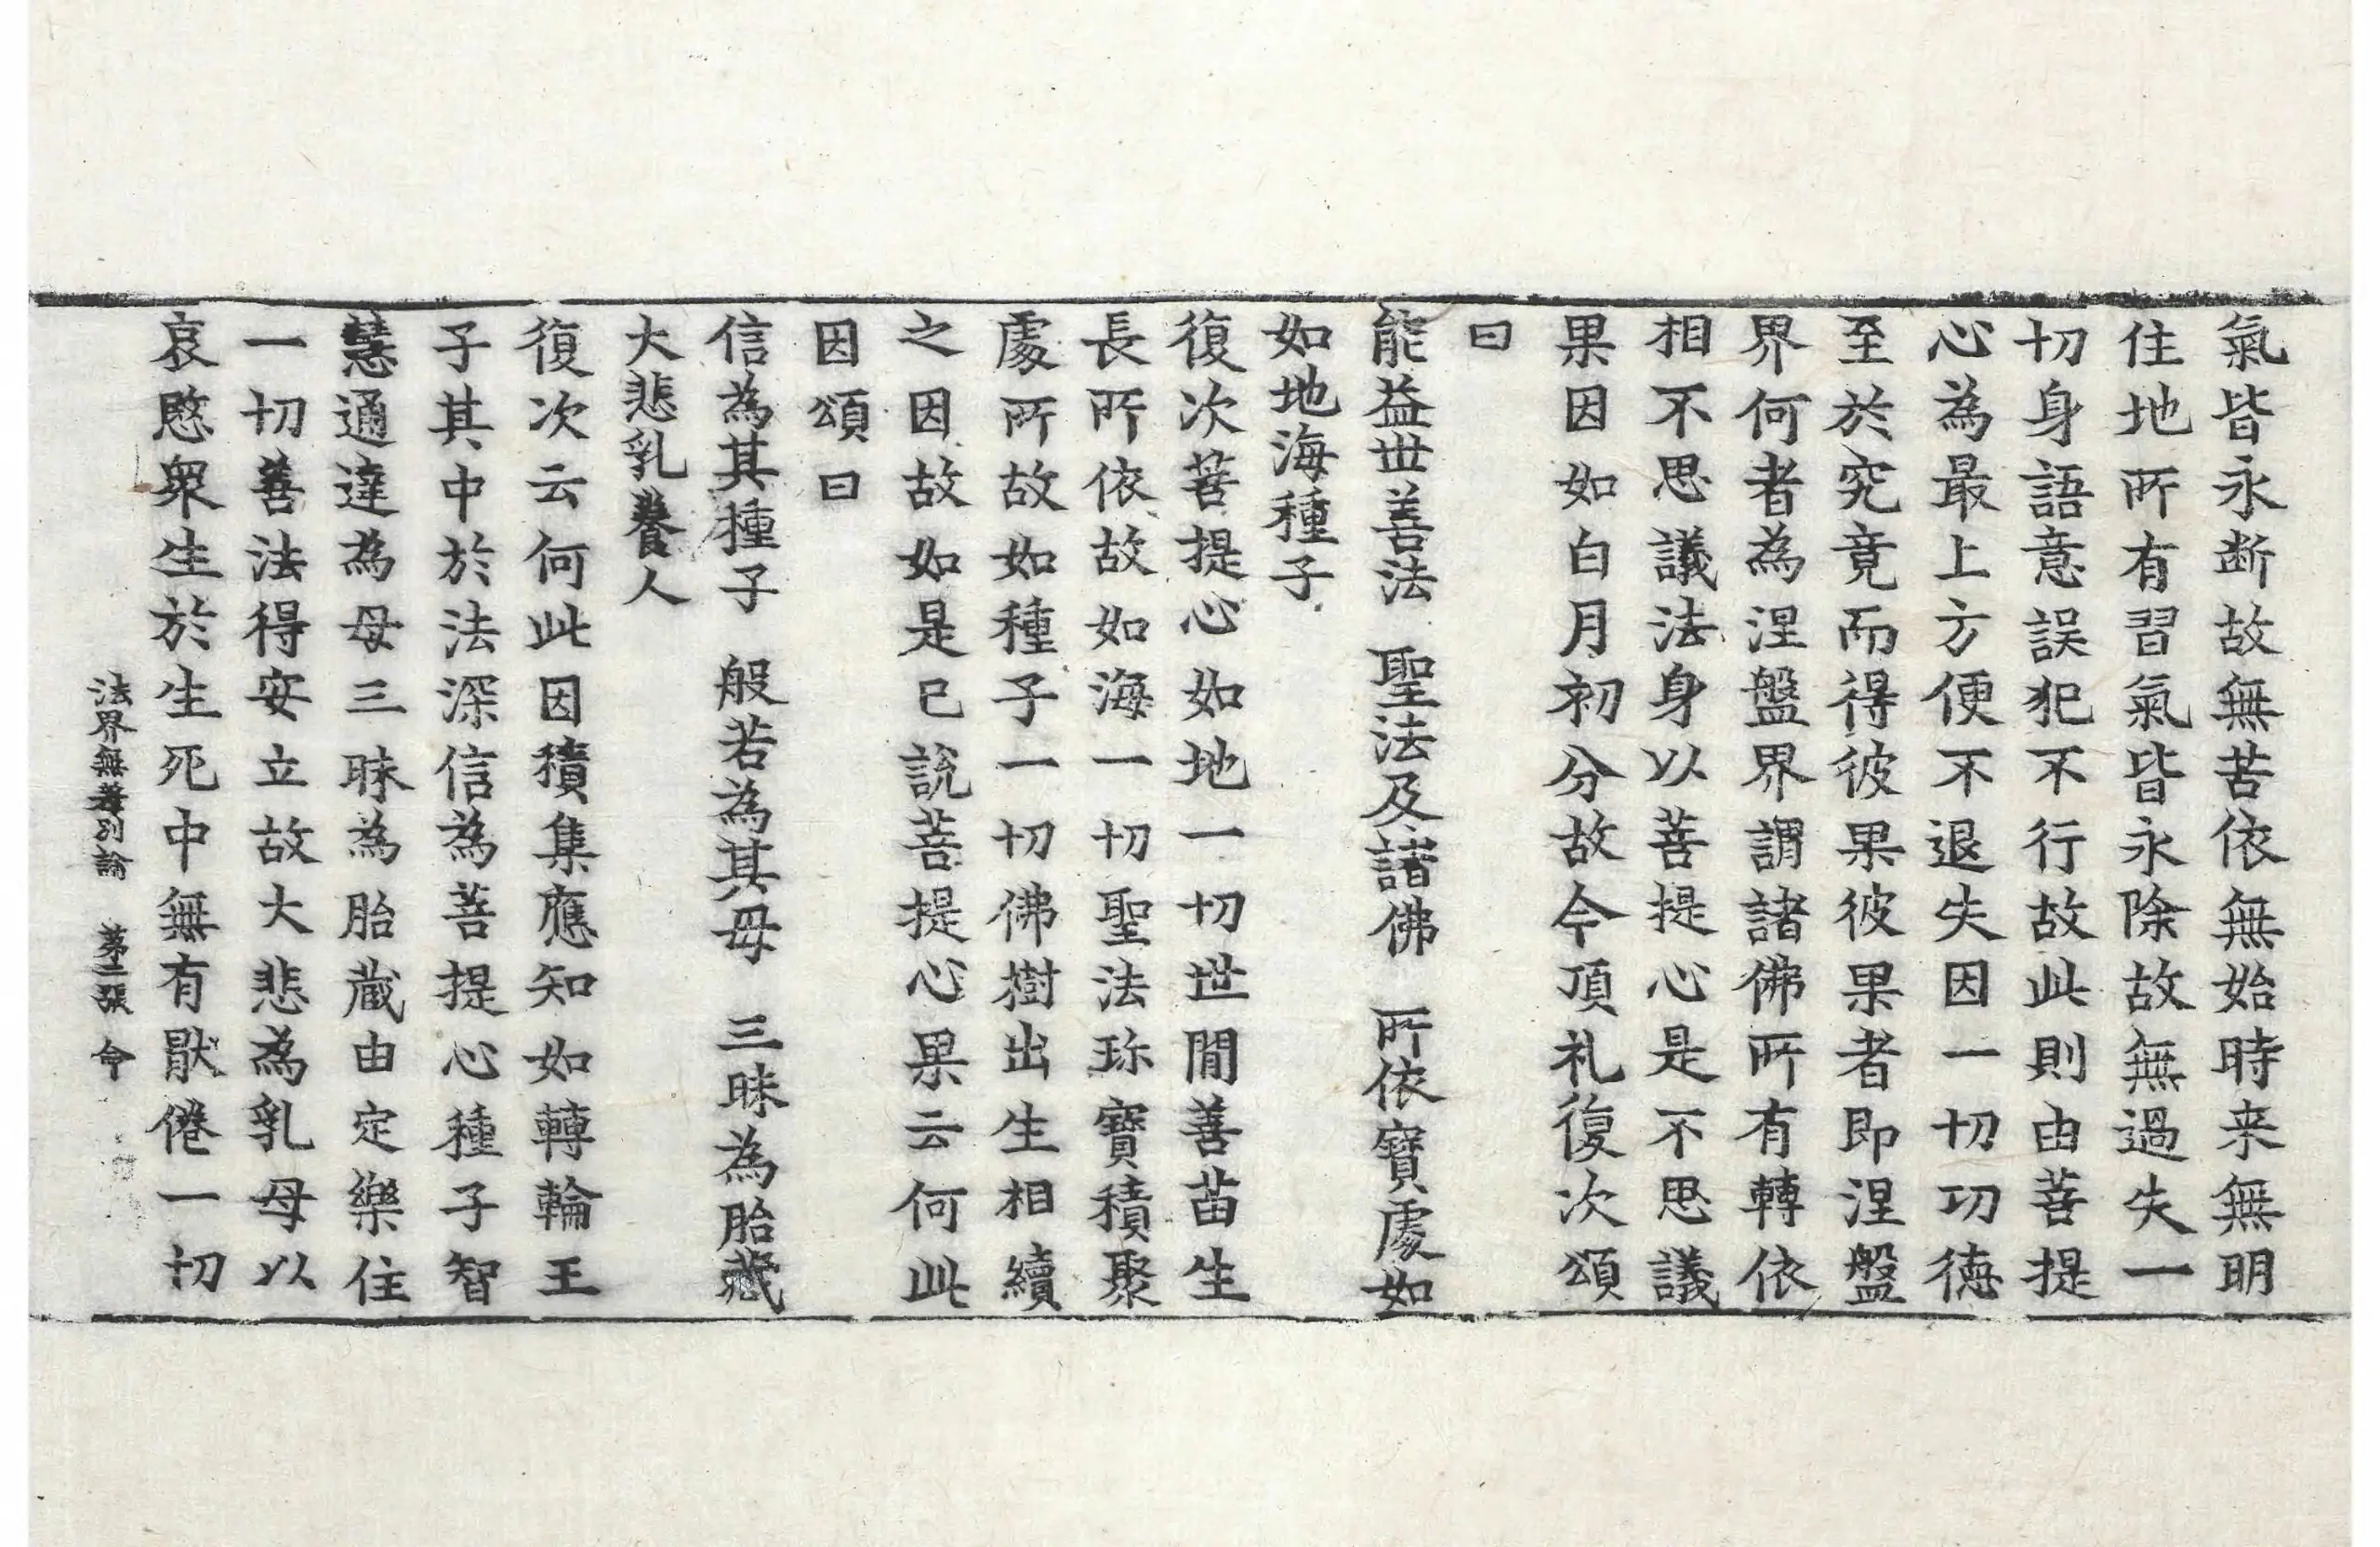 氣皆永断故無苦依無始時来無明
住地所有習氣皆永除故無過失一
切身語意誤犯不行故此則由菩提
心為最上方便不退失因一切功德
至於究竟而得彼果彼果者即涅盤
界何者為涅盤界謂諸佛所有轉依
相不思議法身以菩提心是不思議
果因如白月初分故今頂礼復次頌
曰
能益世善法　聖法及諸佛　所依寶處如
如地海種子
復次菩提心如地一切世閒善苗生
長所依故如海一切聖法珎寶積聚
處所故如種子一切佛樹出生相續
之因故如是已說菩提心果云何此
因頌曰
信為其種子　般若為其母　三昧為胎藏
大悲乳養人
復次云何此因積集應知如轉輪王
子其中於法深信為菩提心種子智
慧通達為母三昧為胎藏由定樂住
一切善法得安立故大悲為乳母以
哀愍衆生於生死中無有猒倦一切
法界無差別論　第二張　命